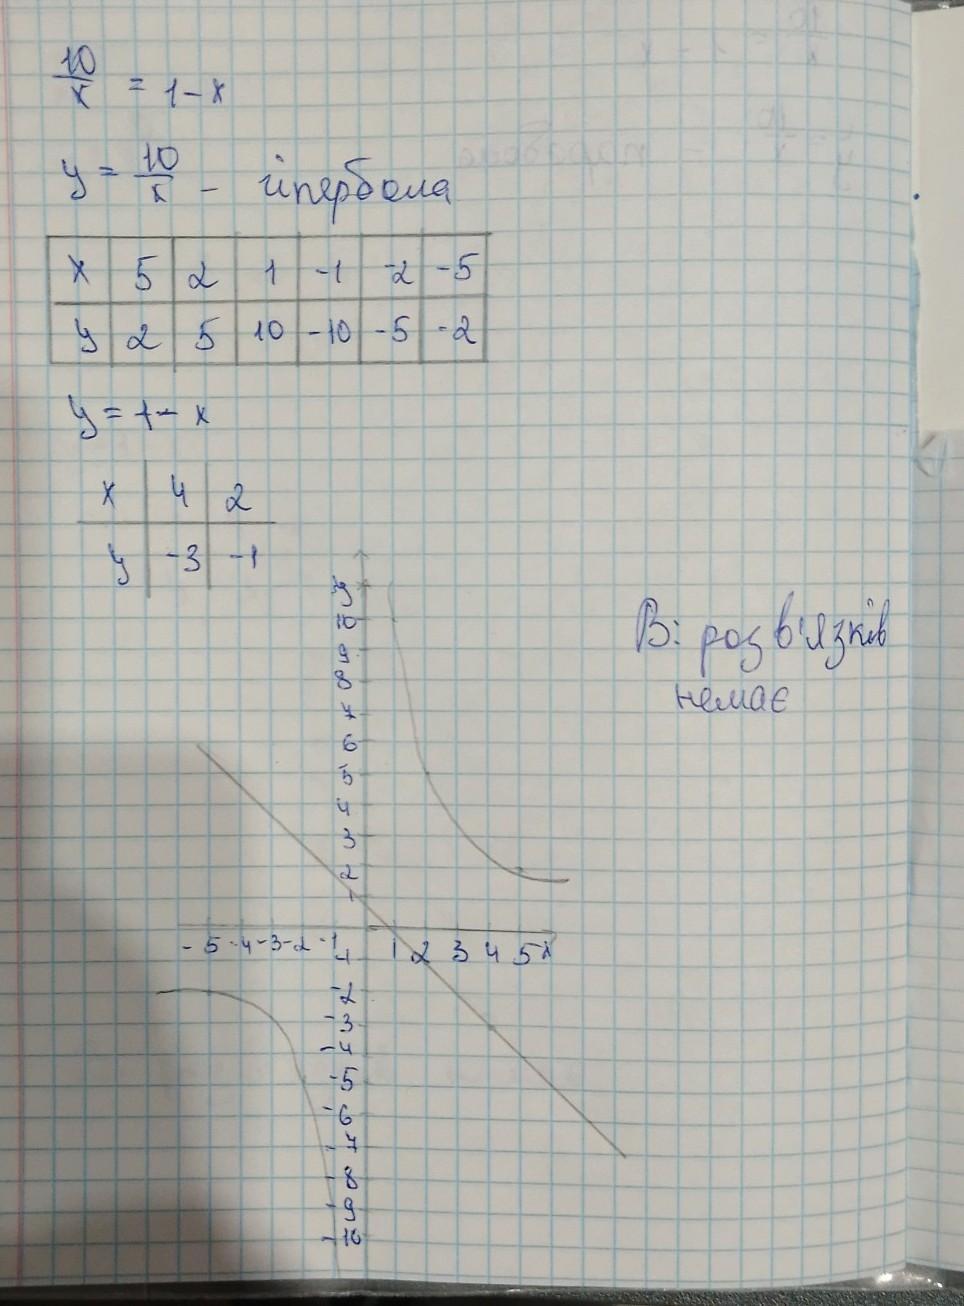 10/x = 1 - x
y = 10/x - гіпербола
x 5 2 1 -1 -2 -5
y 2 5 10 -10 -5 -2
y = 1 - x
x 4 2
y -3 -1
y
10
9
8
7
6
5
4
3
2
1
-5 -4 -3 -2 -1 1 2 3 4 5 x
-1
-2
-3
-4
-5
-6
-7
-8
-9
-10
В: розв'язків
немає